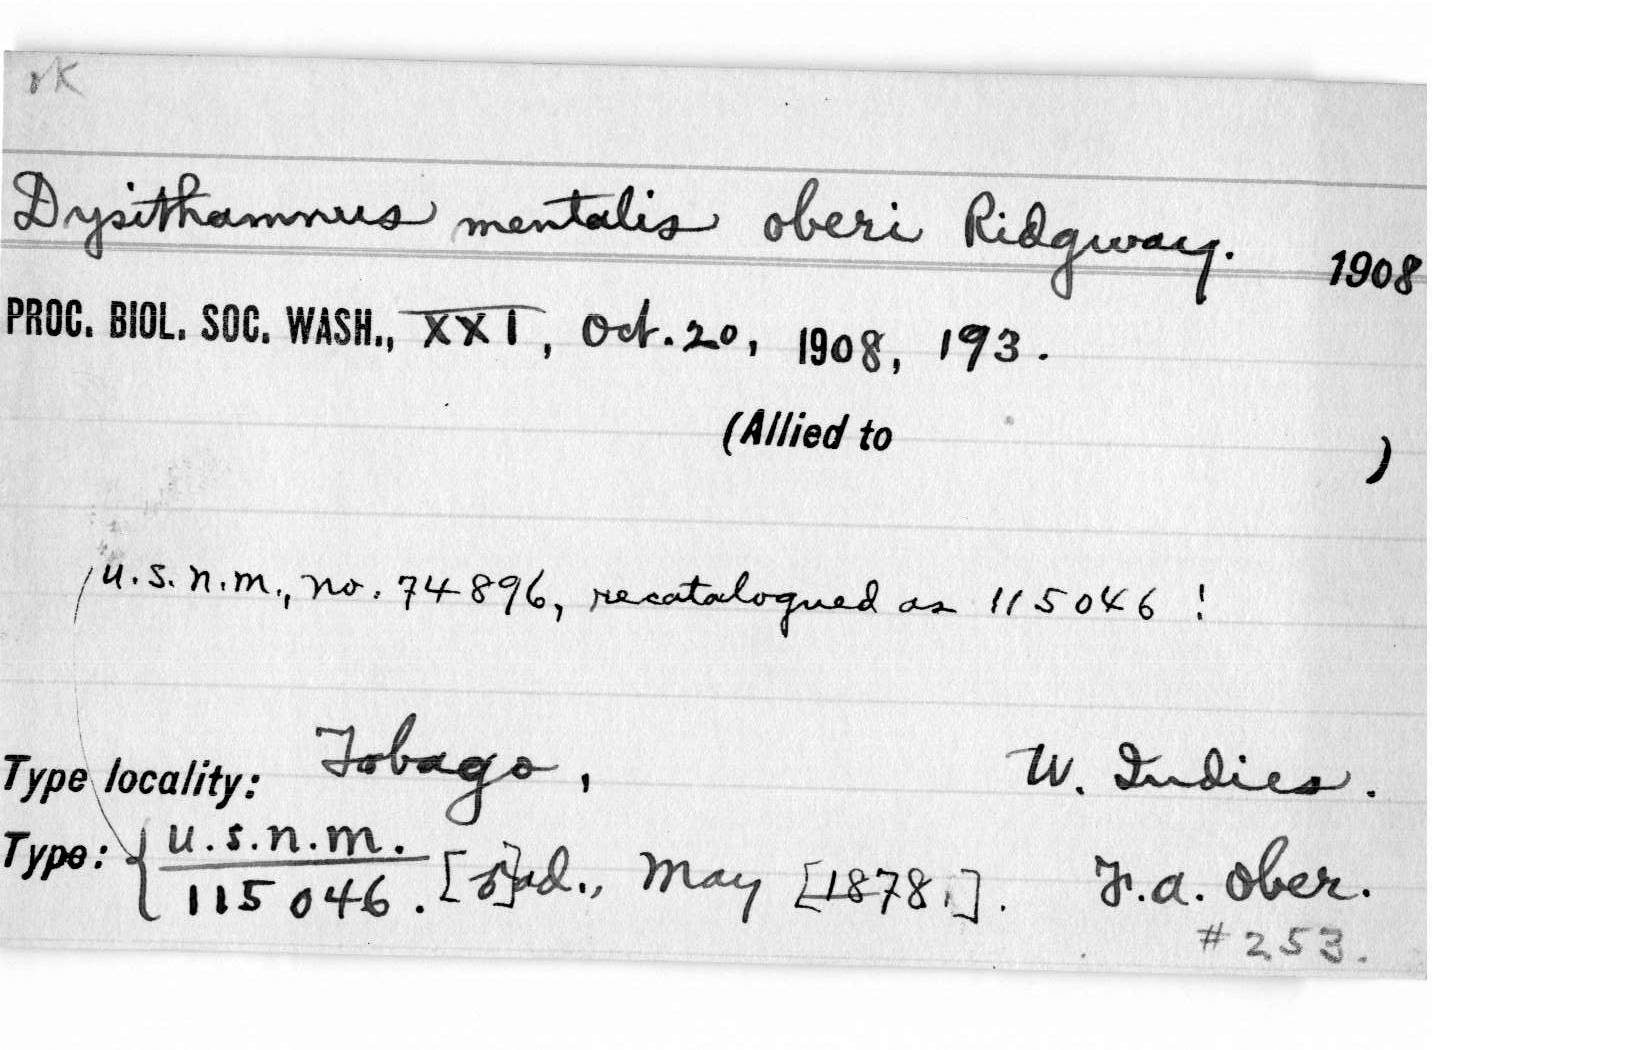 rK
Dysithamnus mentalis oberi Ridgway.
1908
PROC. BIOL. SOC. WASH., XXI, Oct. 20, 1908, 193.
(Allied to )
U.S.N.M., no. 74896, recatalogued as 115046 !
Type locality: Tobago, W. Indies.
Type: { U.S.N.M.
115046. [♂]ad., May [1878.]. F.A. Ober.
#253.